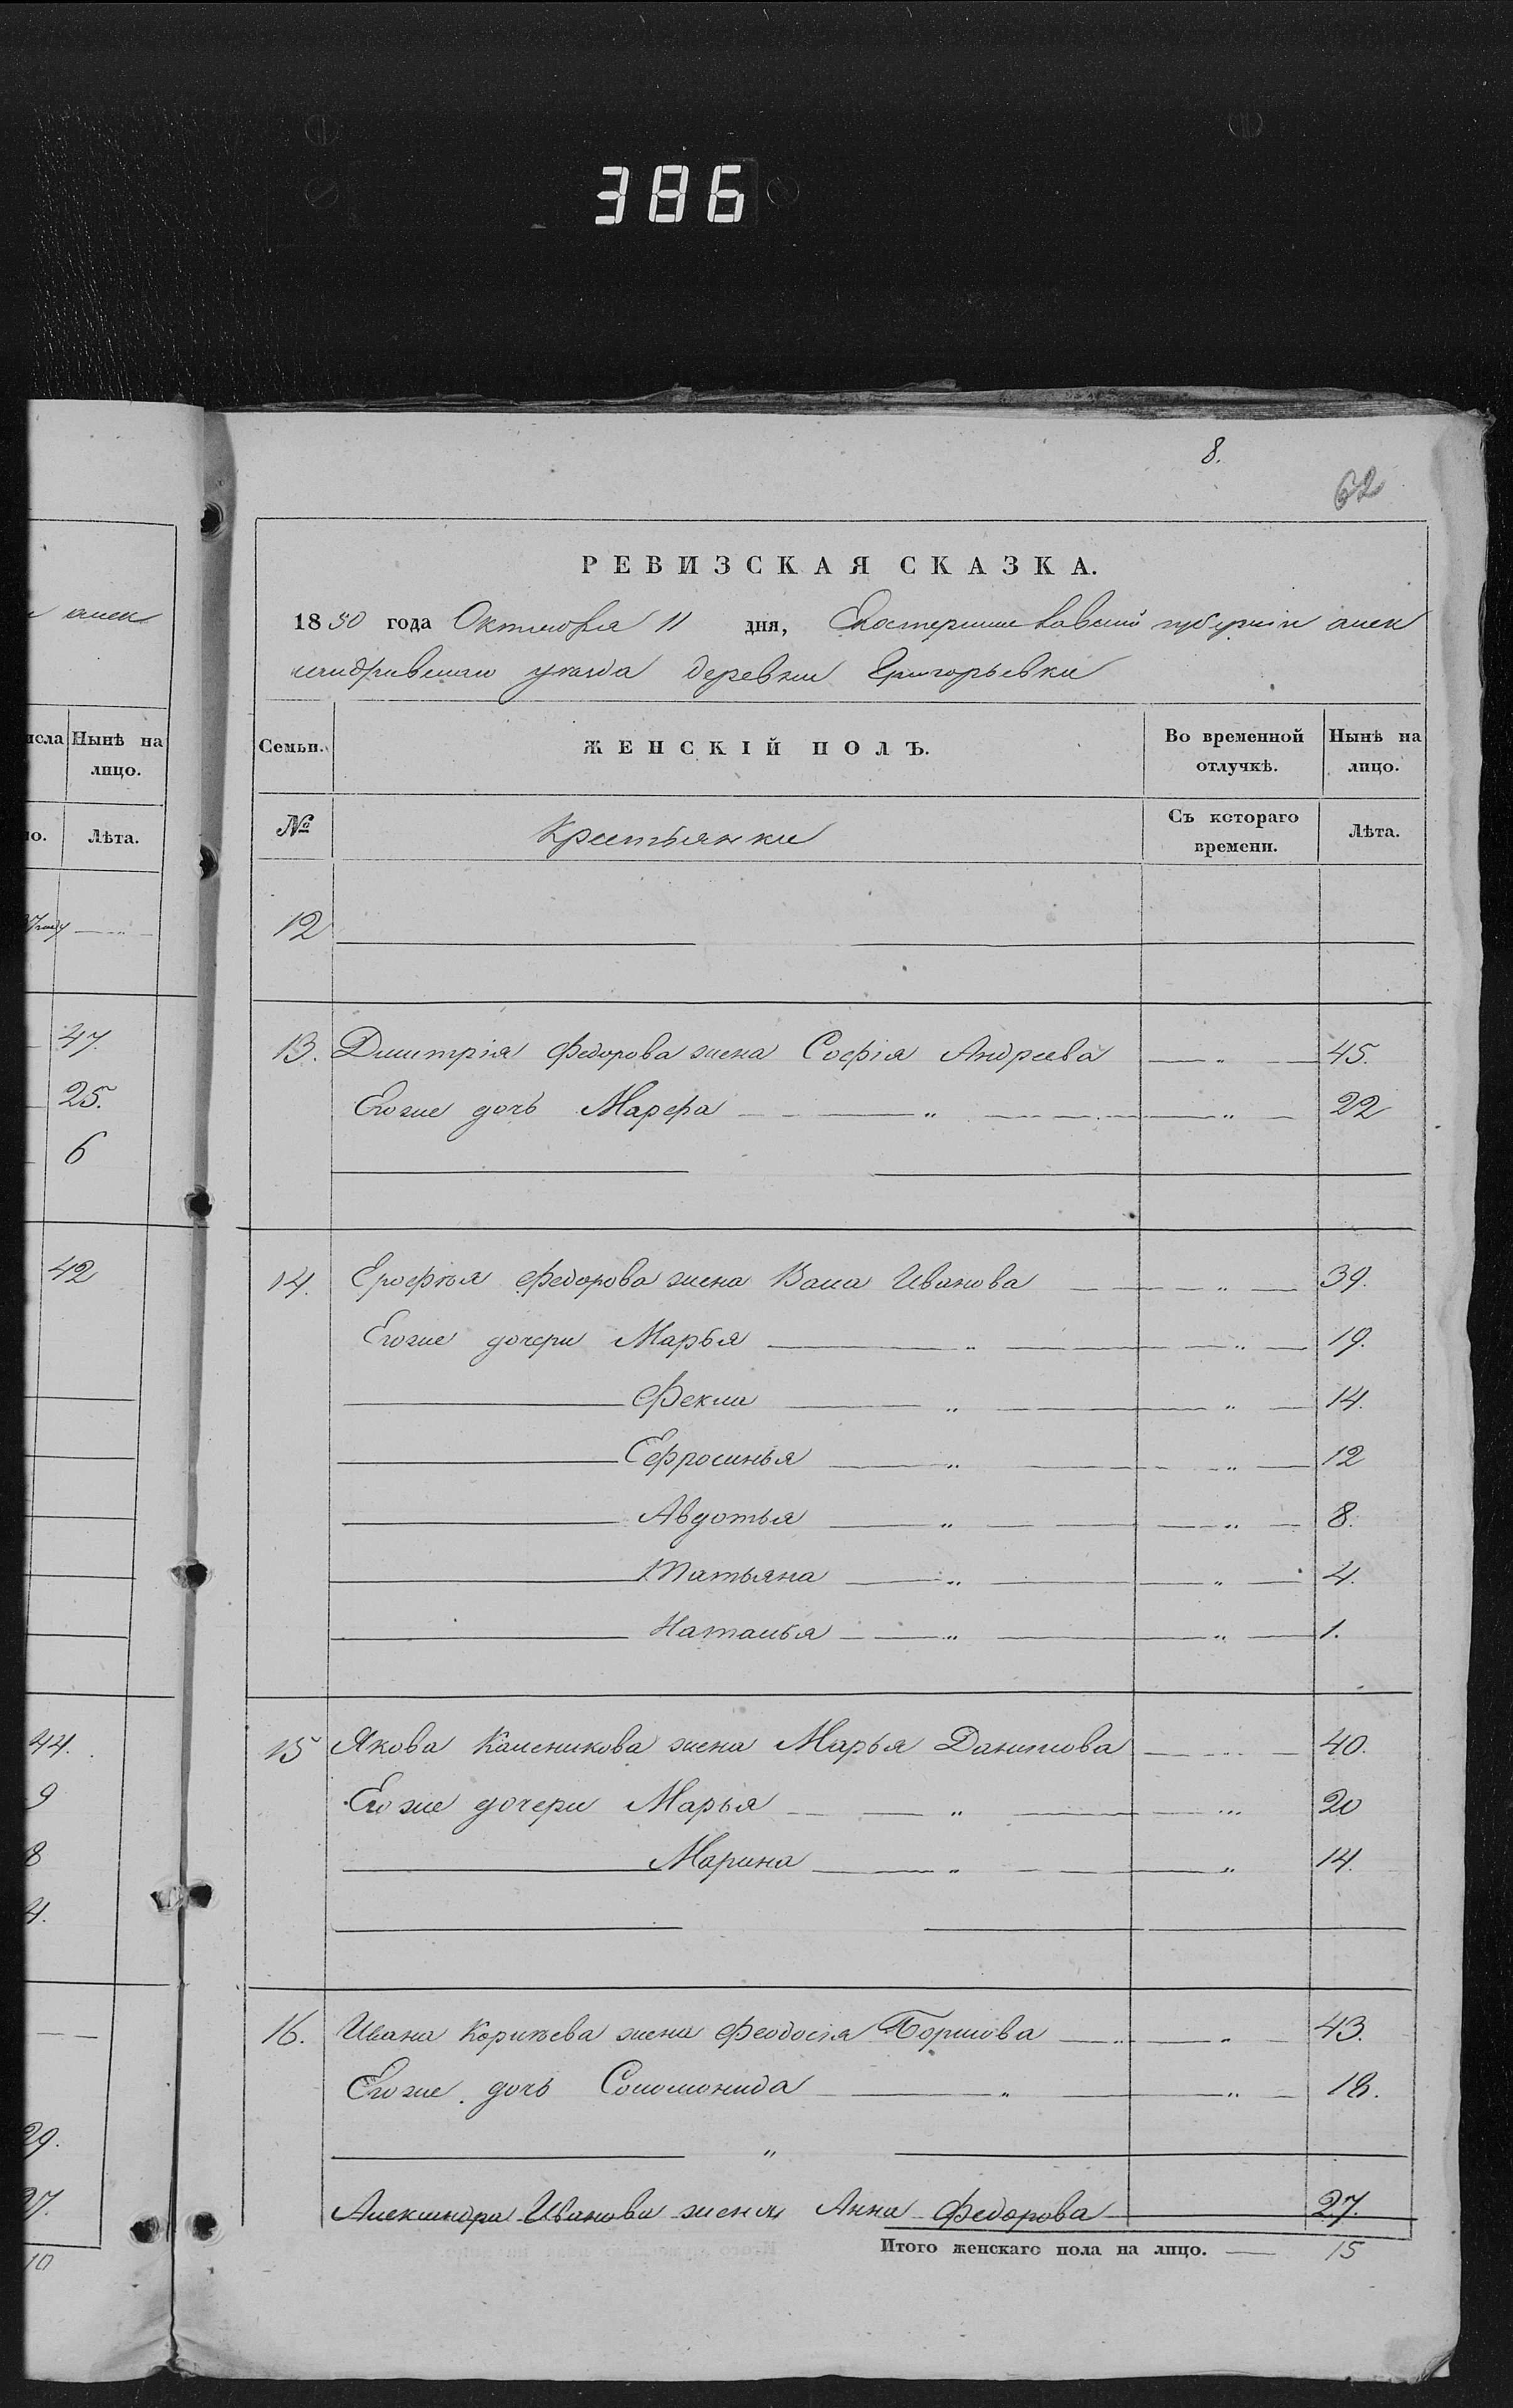 386
8.
62
РЕВИЗСКАЯ СКАЗКА.
1850 года Октября 11 дня, Екатеринославской губернiи алек
сандровскаго уезда деревни Григорьевки
Семьи. ЖЕНСКIЙ ПОЛЪ. Во временной отлучкѣ. Нынѣ на лицо.
№ Крестьянки Съ котораго времени. Лѣта.
12
13. Дмитрiя Федорова жена Софiя Андреева 45.
Егоже дочь Марфа 22
14. Ерофѣя Федорова жена Васа Иванова 39.
Егоже дочери Марья 19.
Фекла 14.
Ефросинья 12
Авдотья 8.
Татьяна 4.
Наталья 1.
15 Якова жена Марья Данилова 40.
Егоже дочери Марья 20
Марина 14.
16. Ивана жена Феодосiя 43.
Егоже дочь Соломонида 18.
Александра Иванова жена Анна Федорова 27.
Итого женскаго пола на лицо. 15
алек
исла Нынѣ на
лицо.
ло. Лѣта.
47.
25.
6
42
44.
9
8
4.
29.
27.
10